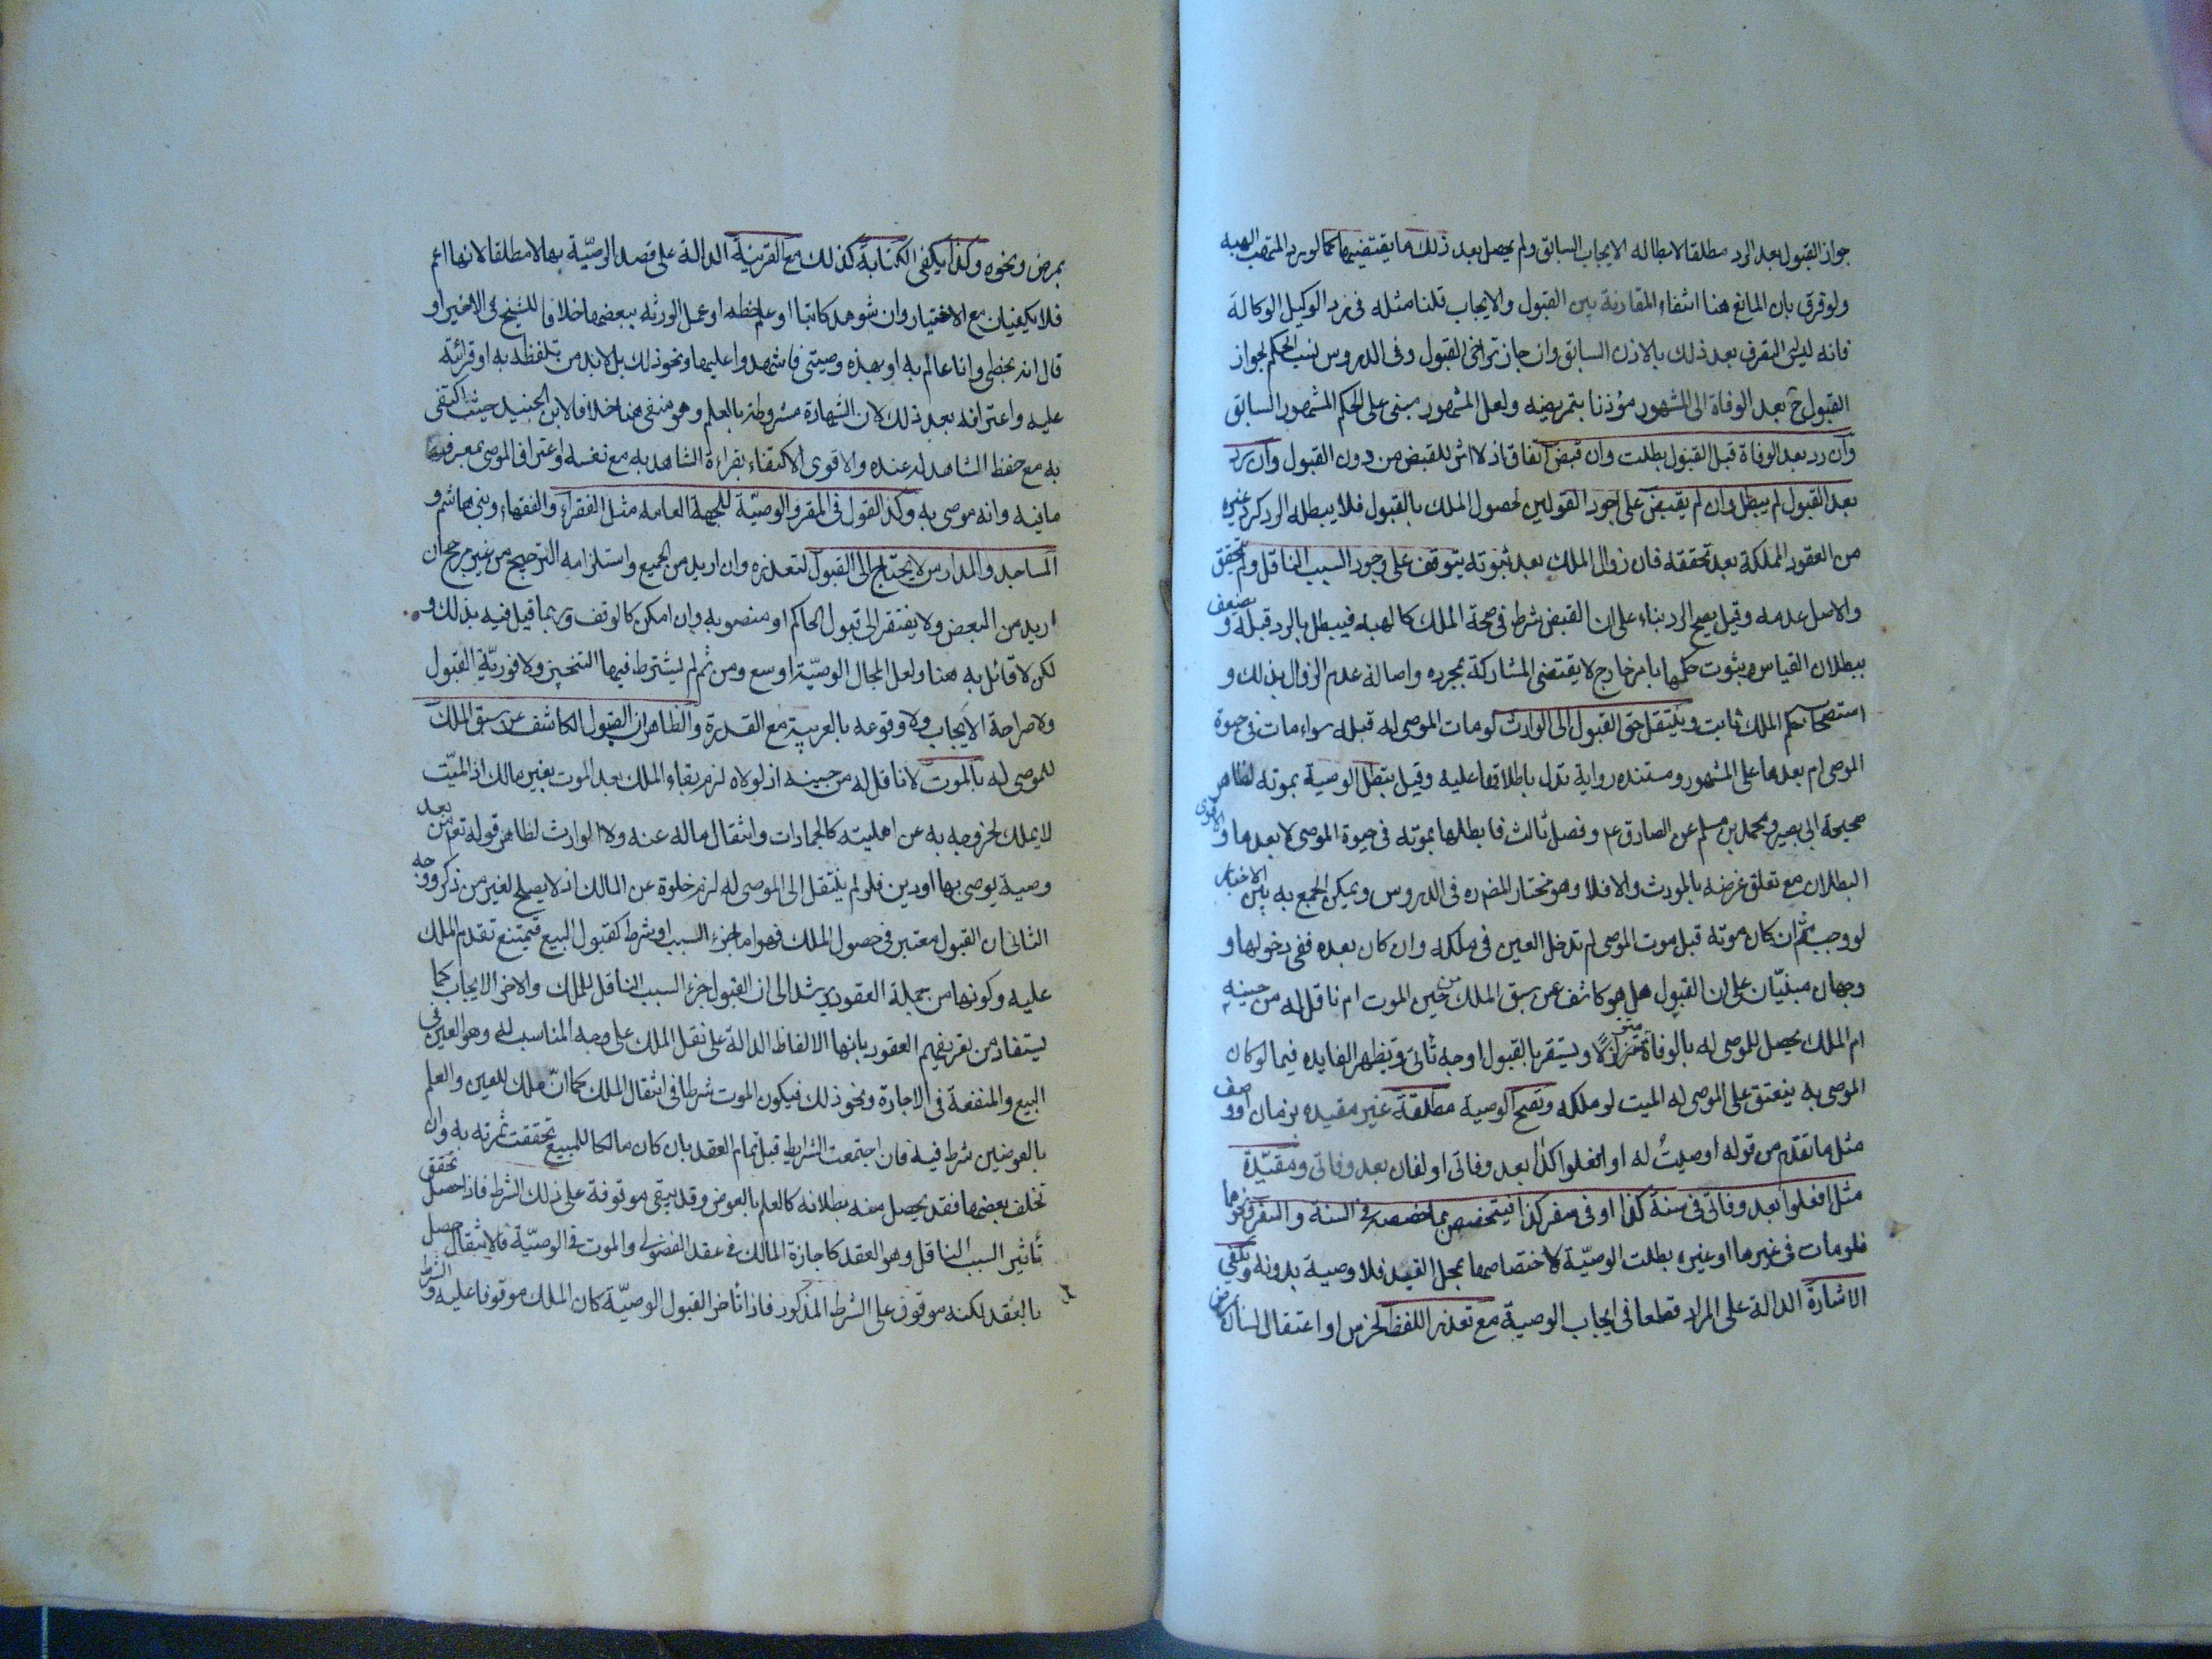 جواز القبول بعد الرد مطلقا لابطاله الايجاب السابق ولم يحصل بعد ذلك ما يقتضيها كما لو رد المتهب الهبه
ولو فرق بان المانع هنا انتفاء المقارنة بين القبول والايجاب قلنا مثله فى رد الوكيل الوكالة
فانه ليس له التصرف بعد ذلك بالاذن السابق وان جاز تراخى القبول وفى الدروس نسب الحكم بجواز
القبول ح بعد الوفاة الى المشهور مؤذنا بتمريضه ولعل المشهور مبنى على الحكم المشهور السابق
وان رد بعد الوفاة قبل القبول بطلت وان قبض اتفاقا اذ لا اثر للقبض من دون القبول وان رد
بعد القبول لم يبطل وان لم يقبض على اجود القولين لحصول الملك بالقبول فلا يبطله الرد كرد غيره
من العقود المملكة بعد تحققه فان زوال الملك بعد ثبوته يتوقف على وجود السبب الناقل ولم يتحقق
والاصل عدمه وقيل يصح الرد بناء على ان القبض شرط فى صحة الملك كالهبه فيبطل بالرد قبله و يضعف
ببطلان القياس وثبوت حكمها بامر خارج لا يقتضى المشاركة بمجرده واصالة عدم الزوال بذلك و
استصحاب حكم الملك ثابت وينتقل حق القبول الى الوارث لو مات الموصى له قبله سواء مات فى حيوة
الموصى ام بعدها على المشهور ومستنده رواية تدل باطلاقها عليه وقيل تبطل الوصية بموته لظاهر
صحيحة ابى بصير ومحمد بن مسلم عن الصادق ع وفصل ثالث فابطلها بموته فى حيوة الموصى لا بعدها و الاقوى
البطلان مع تعلق غرضه بالمورث والا فلا وهو مختار المصره فى الدروس ويمكن الجمع به بين الاخبار
لو وجب ثم ان كان موته قبل موت الموصى لم تدخل العين فى ملكه وان كان بعده ففى دخولها و
وجهان مبنيّان على ان القبول هل هو كاشف عن سبق الملك من حين الموت ام ناقل له من حينه
ام الملك يحصل للموصى له بالوفاة متزلزلاً ويستقر بالقبول اوجه تأتى وتظهر الفايده فيما لو كان
الموصى به ينعتق على الموصى له الميت لو ملكه وتصح الوصية مطلقة غير مقيده بزمان او وصف
مثل ما تقدم من قوله اوصيتُ له او افعلوا كذا بعد وفاتى او لفلان بعد وفاتى ومقيّدة
مثل افعلوا بعد وفاتى فى سنة كذا او فى سفر كذا فيتخصص بما خصصه فى السنة والسفر ونحوهما
فلو مات فى غيرها او غيره بطلت الوصيّة لاختصاصها بمحل القيد فلا وصية بدونه وتكفي
الاشارة الدالة على المراد قطعا فى ايجاب الوصية مع تعذر اللفظ لخرس او اعتقال لسان
بمرض ونحوه وكذا يكفى الكتابة كذلك مع القرينة الدالة على قصد الوصيّة بها لا مطلقا لانها اعم
فلا يكفيان مع الاختيار وان شوهد كاتبا او علم خطه او عمل الورثه ببعضها خلافا للشيخ فى الاخير او
قال انه بخطى وانا عالم به او هذه وصيتى فاشهدوا عليها ونحو ذلك بل لا بد من تلفظه به او قرائة
عليه واعترافه بعد ذلك لان الشهادة مشروطة بالعلم وهو منفى هنا خلافا لابن الجنيد حيث اكتفى
به مع حفظ الشاهد له عنده والاقوى الاكتفاء بقراءة الشاهد به مع نفسه واعتراف الموصى بمعرفته
ما فيه وانه موصى به وكذا القول فى المقر والوصيّة للجهة العامه مثل الفقراء والفقهاء وبنى هاشم و
المساجد والمدارس لا يحتاج الى القبول لتعذره وان اريد من الجميع واستلزامه الترجيح من غير مرجح ان
اريد من البعض ولا يفتقر الى قبول الحاكم او منصوبه وان امكن كالوقف وربما قيل فيه بذلك و
لكن لا قائل به هنا ولعل المجال الوصيّة اوسع ومن ثم لم يشترط فيها التنجيز ولا فوريّة القبول
ولا صراحة الايجاب ولا وقوعه بالعربية مع القدرة والظاهر ان القبول الكاشف عن سبق الملك
للموصى له بالموت لا ناقل له من حينه اذ لولاه لزم بقاء الملك بعد الموت بغير مالك اذ الميّت
لا يملك لخروجه به عن اهليته كالجمادات وانتقال ماله عنه ولا الوارث لظاهر قوله تع من بعد
وصية يوصى بها او دين فلو لم ينتقل الى الموصى له لزم خلوة عن المالك اذ لا يصلح لغير من ذكر ووجه
الثانى ان القبول معتبر فى حصول الملك فهو اما جزء السبب او شرط كقبول البيع فيمتنع تقدم الملك
عليه وكونها من جملة العقود يرشد الى ان القبول جزء السبب الناقل للملك والاخر الايجاب كما
يستفاد من تعريفهم العقود بانها الالفاظ الدالة على نقل الملك على وجه المناسب له وهو العين فى
البيع والمنفعة فى الاجارة ونحو ذلك فيكون الموت شرطا فى انتقال الملك كما انّ ملك للعين والعلم
بالعوضين شرط فيه فان اجتمعت الشرايط قبل تمام العقد بان كان مالكا للمبيع تحققت ثمرته به وان
تخلف بعضها فقد يحصل منه بطلانه كالعلم بالعوض وقد يبقى موقوفة على ذلك الشرط فاذا حصل تحقق
تأثير السبب الناقل وهو العقد كاجازة المالك فى عقد الفضولى والموت فى الوصيّة فالانتقال حصل
بالعقد لكنه موقوف على الشرط المذكور فاذا تأخر القبول الوصيّة كان الملك موقوفا عليه و الشرط